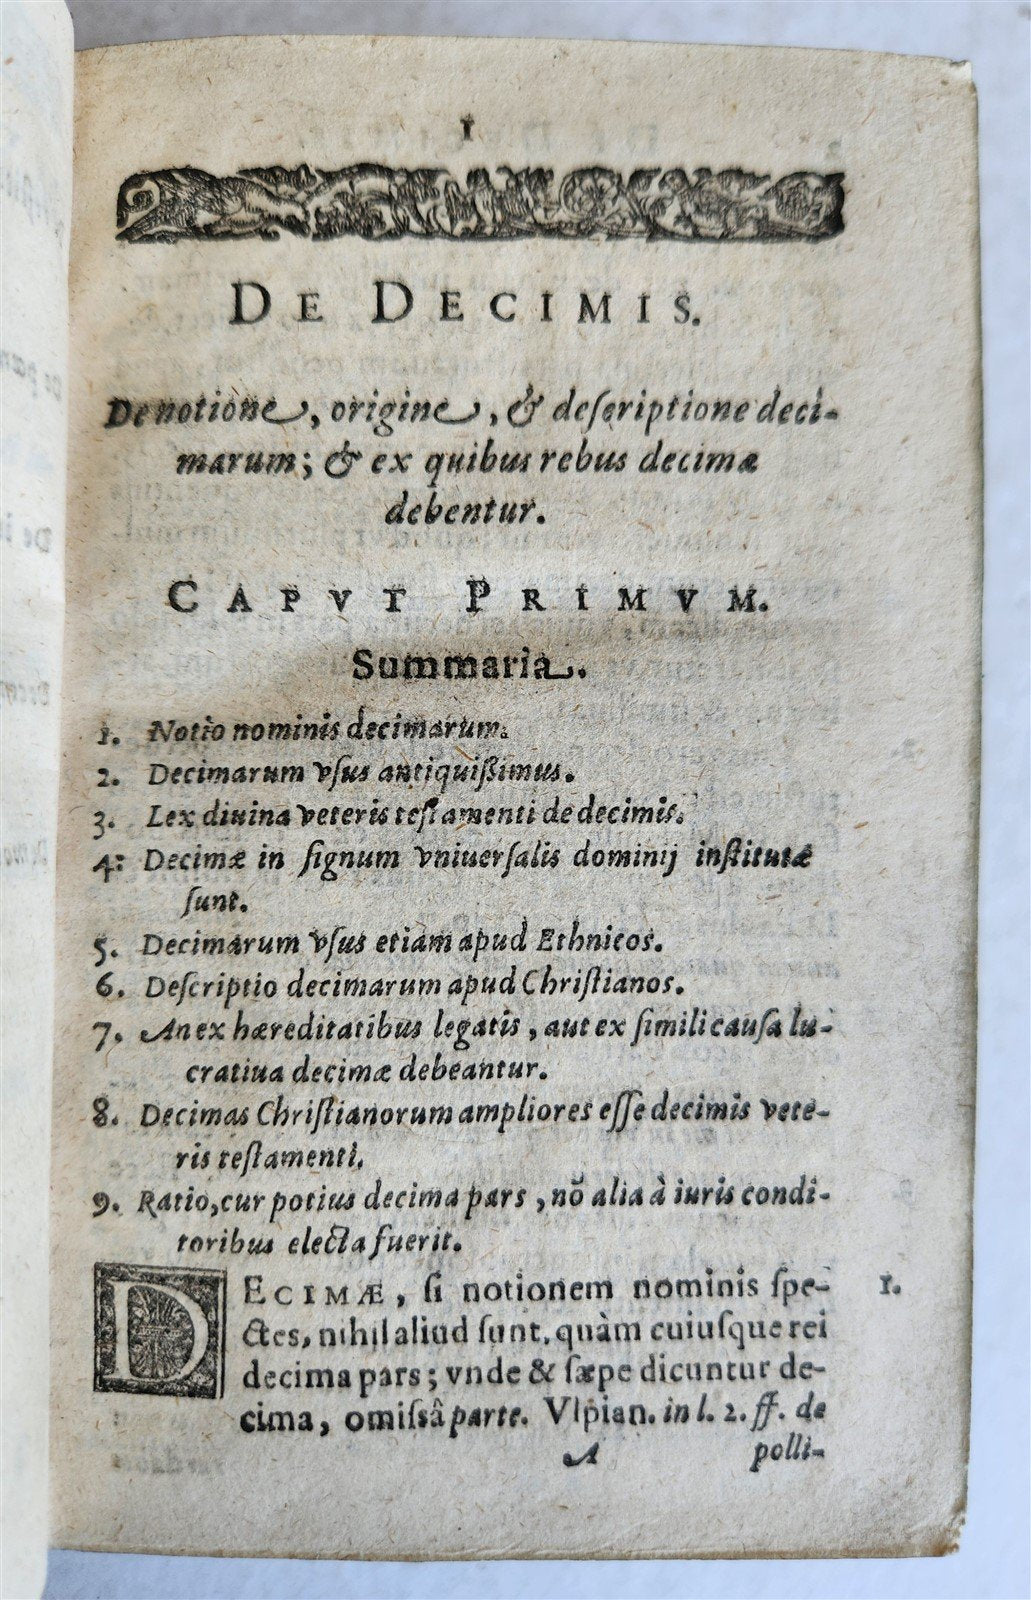 1
DE DECIMIS.
De notione, origine, & deſcriptione deci-
marum; & ex quibus rebus decimæ
debentur.
CAPVT PRIMVM.
Summaria.
1. Notio nominis decimarum.
2. Decimarum vſus antiquißimus.
3. Lex diuina veteris teſtamenti de decimis.
4: Decimæ in ſignum vniuerſalis dominij inſtitutæ
ſunt.
5. Decimarum vſus etiam apud Ethnicos.
6. Deſcriptio decimarum apud Chriſtianos.
7. An ex hæreditatibus legatis, aut ex ſimili cauſa lu-
cratiua decimæ debeantur.
8. Decimas Chriſtianorum ampliores eſſe decimis vete-
ris teſtamenti.
9. Ratio, cur potius decima pars, nõ alia à iuris condi-
toribus electa fuerit.
DECIMÆ, ſi notionem nominis ſpe- 1.
ctes, nihil aliud ſunt. quàm cuiuſque rei
decima pars; vnde & ſæpe dicuntur de-
cima, omiſsâ parte. Vlpian. in l. 2. ff. de
A polli-